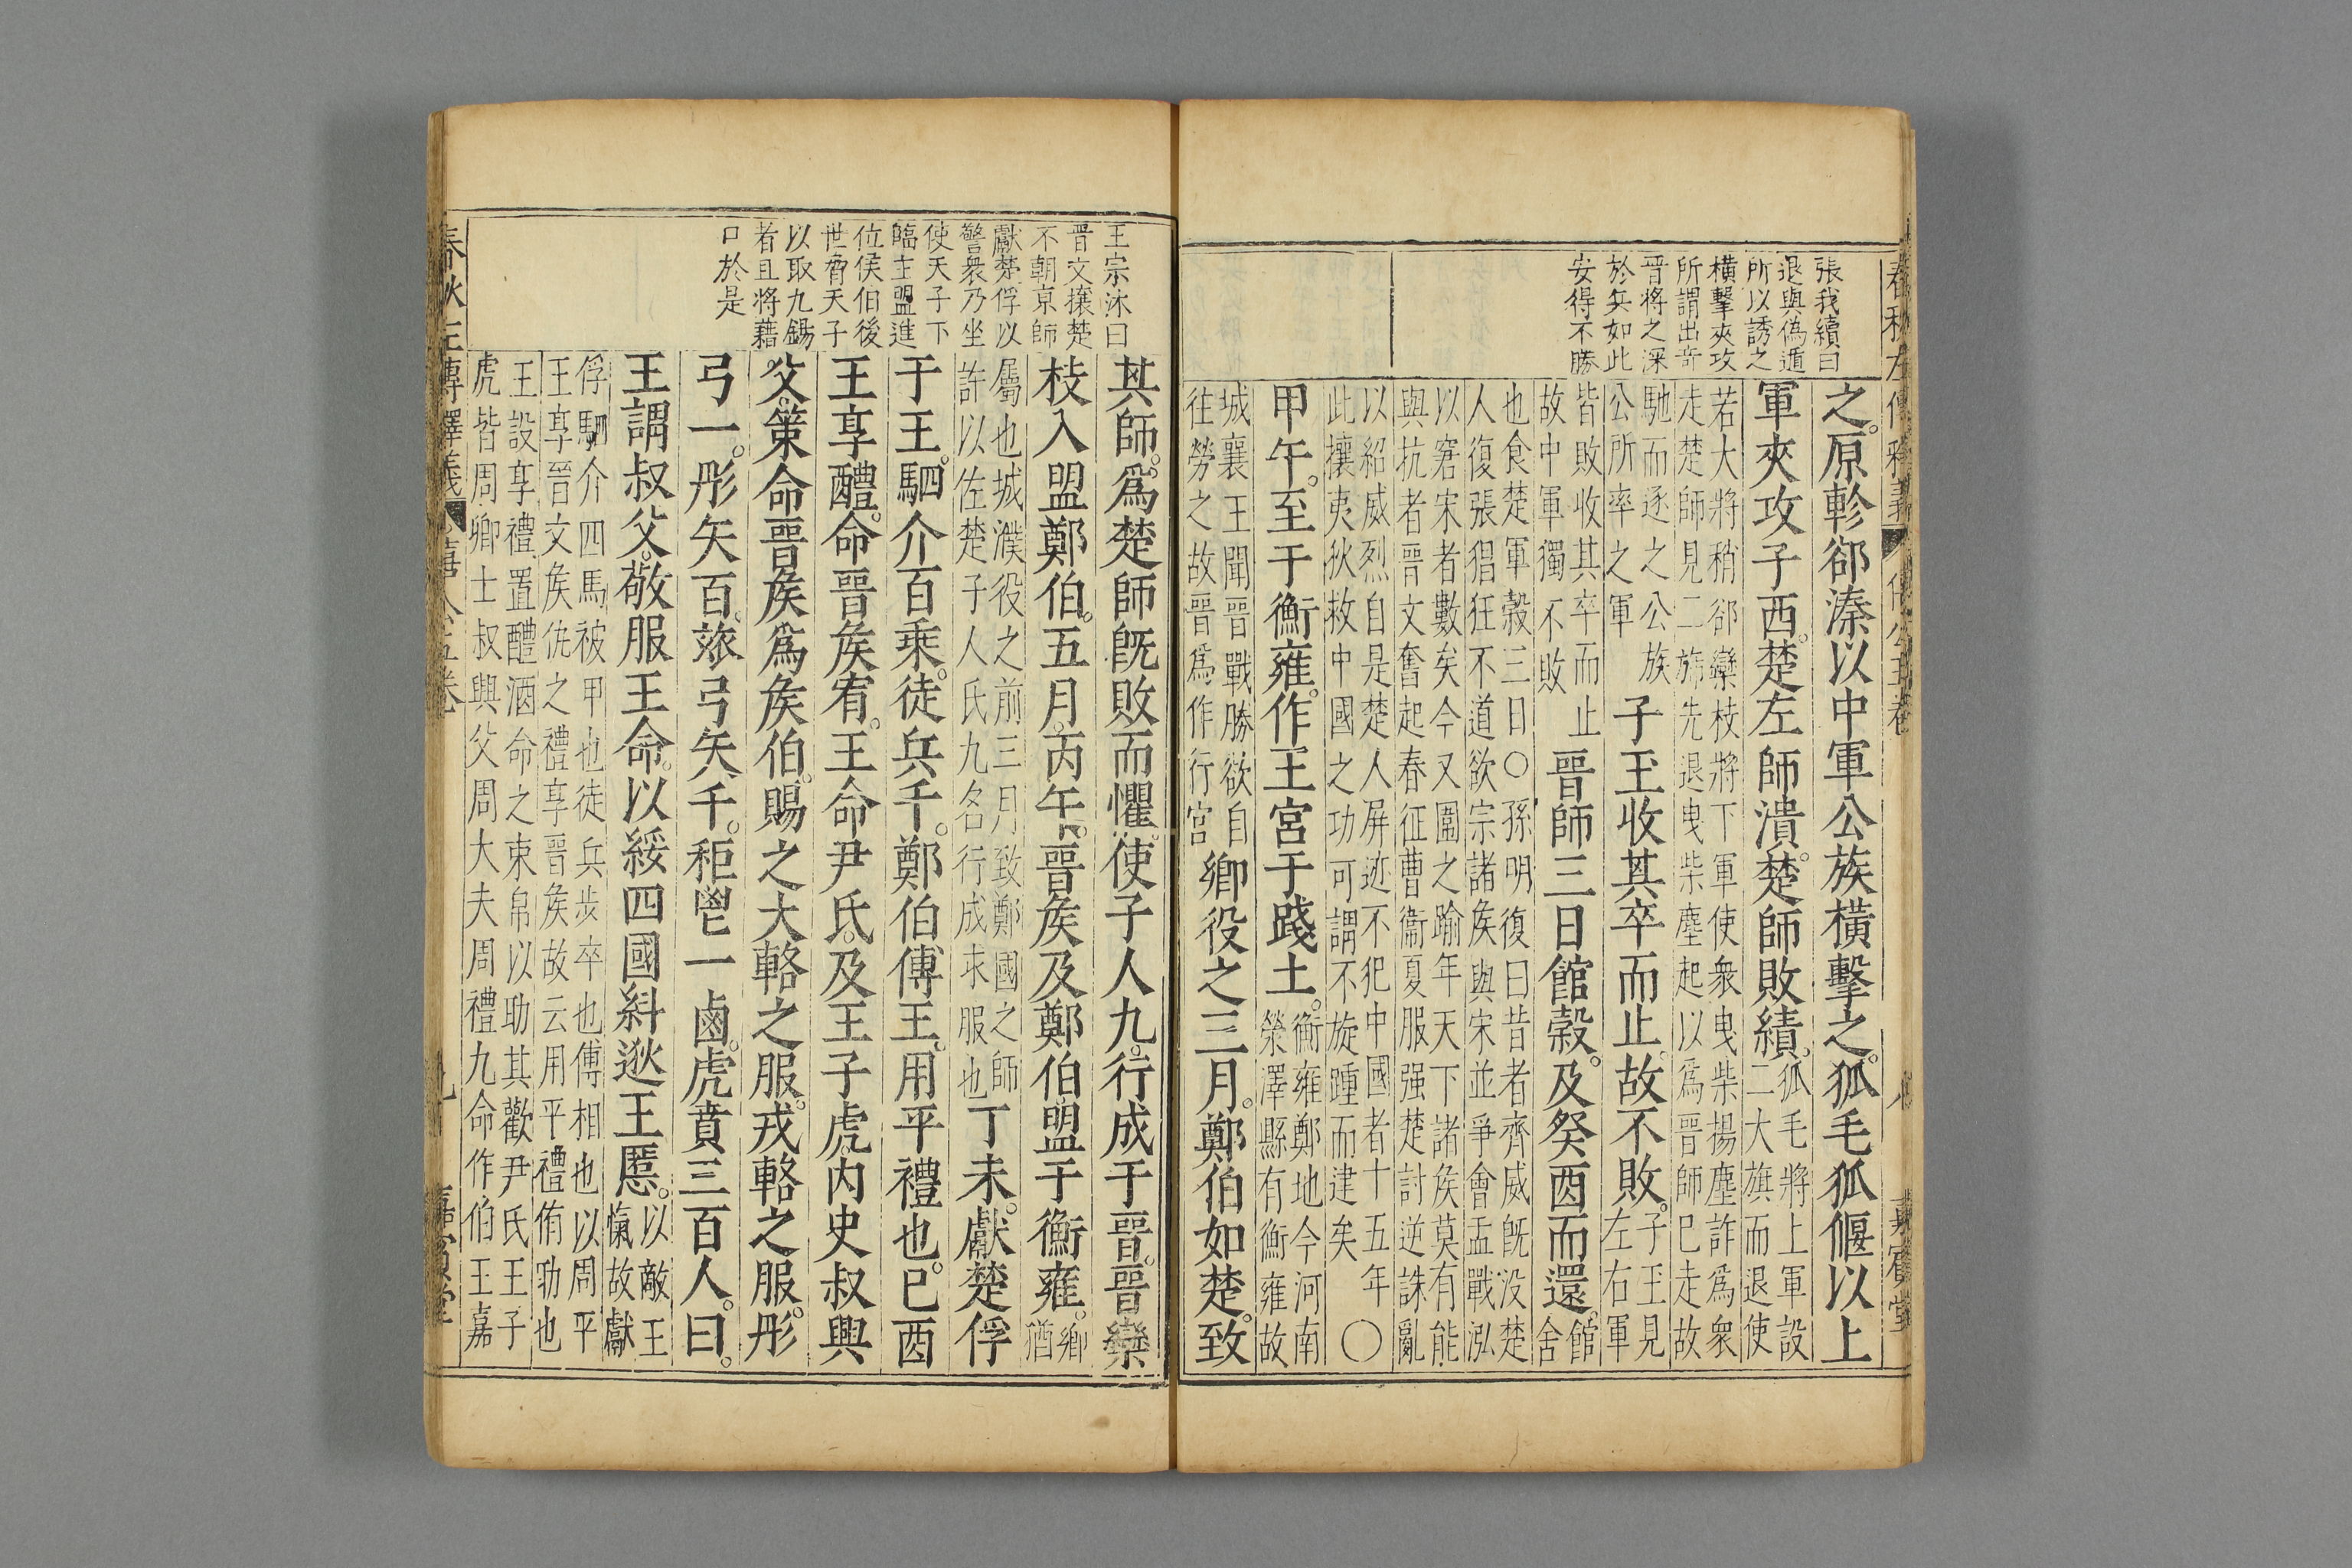 春秋左傳釋義 僖公五卷 八 嘉賓堂
張我續曰
退與偽遁
所以誘之
橫擊夾攻
所謂出奇
晋將之深
於兵如此
安得不勝
之。原軫郤溱以中軍公族橫擊之。狐毛狐偃以上
軍夾攻子西。楚左師潰。楚師敗績。
狐毛將上軍設
二大旗而退使
若大將稍郤欒枝將下軍使衆曳柴揚塵詐爲衆
走楚師見二旆先退曳柴塵起以爲晋師已走故
馳而逐之公族
公所率之軍
子玉收其卒而止。故不敗。
子玉見
左右軍
皆敗收其卒而止
故中軍獨不敗
晋師三日館糓。及癸酉而還。
館
舍
也食楚軍穀三日○孫明復曰昔者齊威旣没楚
人復張猖狂不道欲宗諸矦與宋並爭會盂戰泓
以窘宋者數矣今又圍之踰年天下諸矦莫有能
與抗者晋文奮起春征曹衞夏服强楚討逆誅亂
以紹威烈自是楚人屏迹不犯中國者十五年
此攘夷狄救中國之功可謂不旋踵而建矣○
甲午。至于衡雍。作王宮于踐土。
衡雍鄭地今河南
滎澤縣有衡雍故
城襄王聞晋戰勝欲自
往勞之故晋爲作行宮
鄉役之三月。鄭伯如楚。致
王宗沐曰
晋文攘楚
不朝京師
獻楚俘以
警衆乃坐
使天子下
臨主盟進
位侯伯後
世脅天子
以取九錫
者且將藉
口於是
其師。爲楚師旣敗而懼。使子人九。行成于晋。晋欒
枝入盟鄭伯。五月。丙午。晋矦及鄭伯盟于衡雍。
鄉
猶
屬也城濮役之前三月致鄭國之師
許以佐楚子人氏九名行成求服也
丁未。獻楚俘
于王。駟介百乘。徒兵千。鄭伯傅王。用平禮也。已酉
王享醴。命晋矦宥。王命尹氏。及王子虎。内史叔興
父。策命晋矦爲矦伯。賜之大輅之服。戎輅之服。彤
弓一。彤矢百。玈弓矢千。秬鬯一卣。虎賁三百人。曰。
王謂叔父。敬服王命。以綏四國。糾逖王慝。
以敵王
愾故獻
俘駟介四馬被甲也徒兵步卒也傅相也以周平
王享晋文矦仇之禮享晋矦故云用平禮侑助也
王設享禮置醴酒命之束帛以助其歡尹氏王子
虎皆周卿士叔興父周大夫周禮九命作伯王嘉
春秋左傳釋義 僖公五卷 九 嘉賓堂